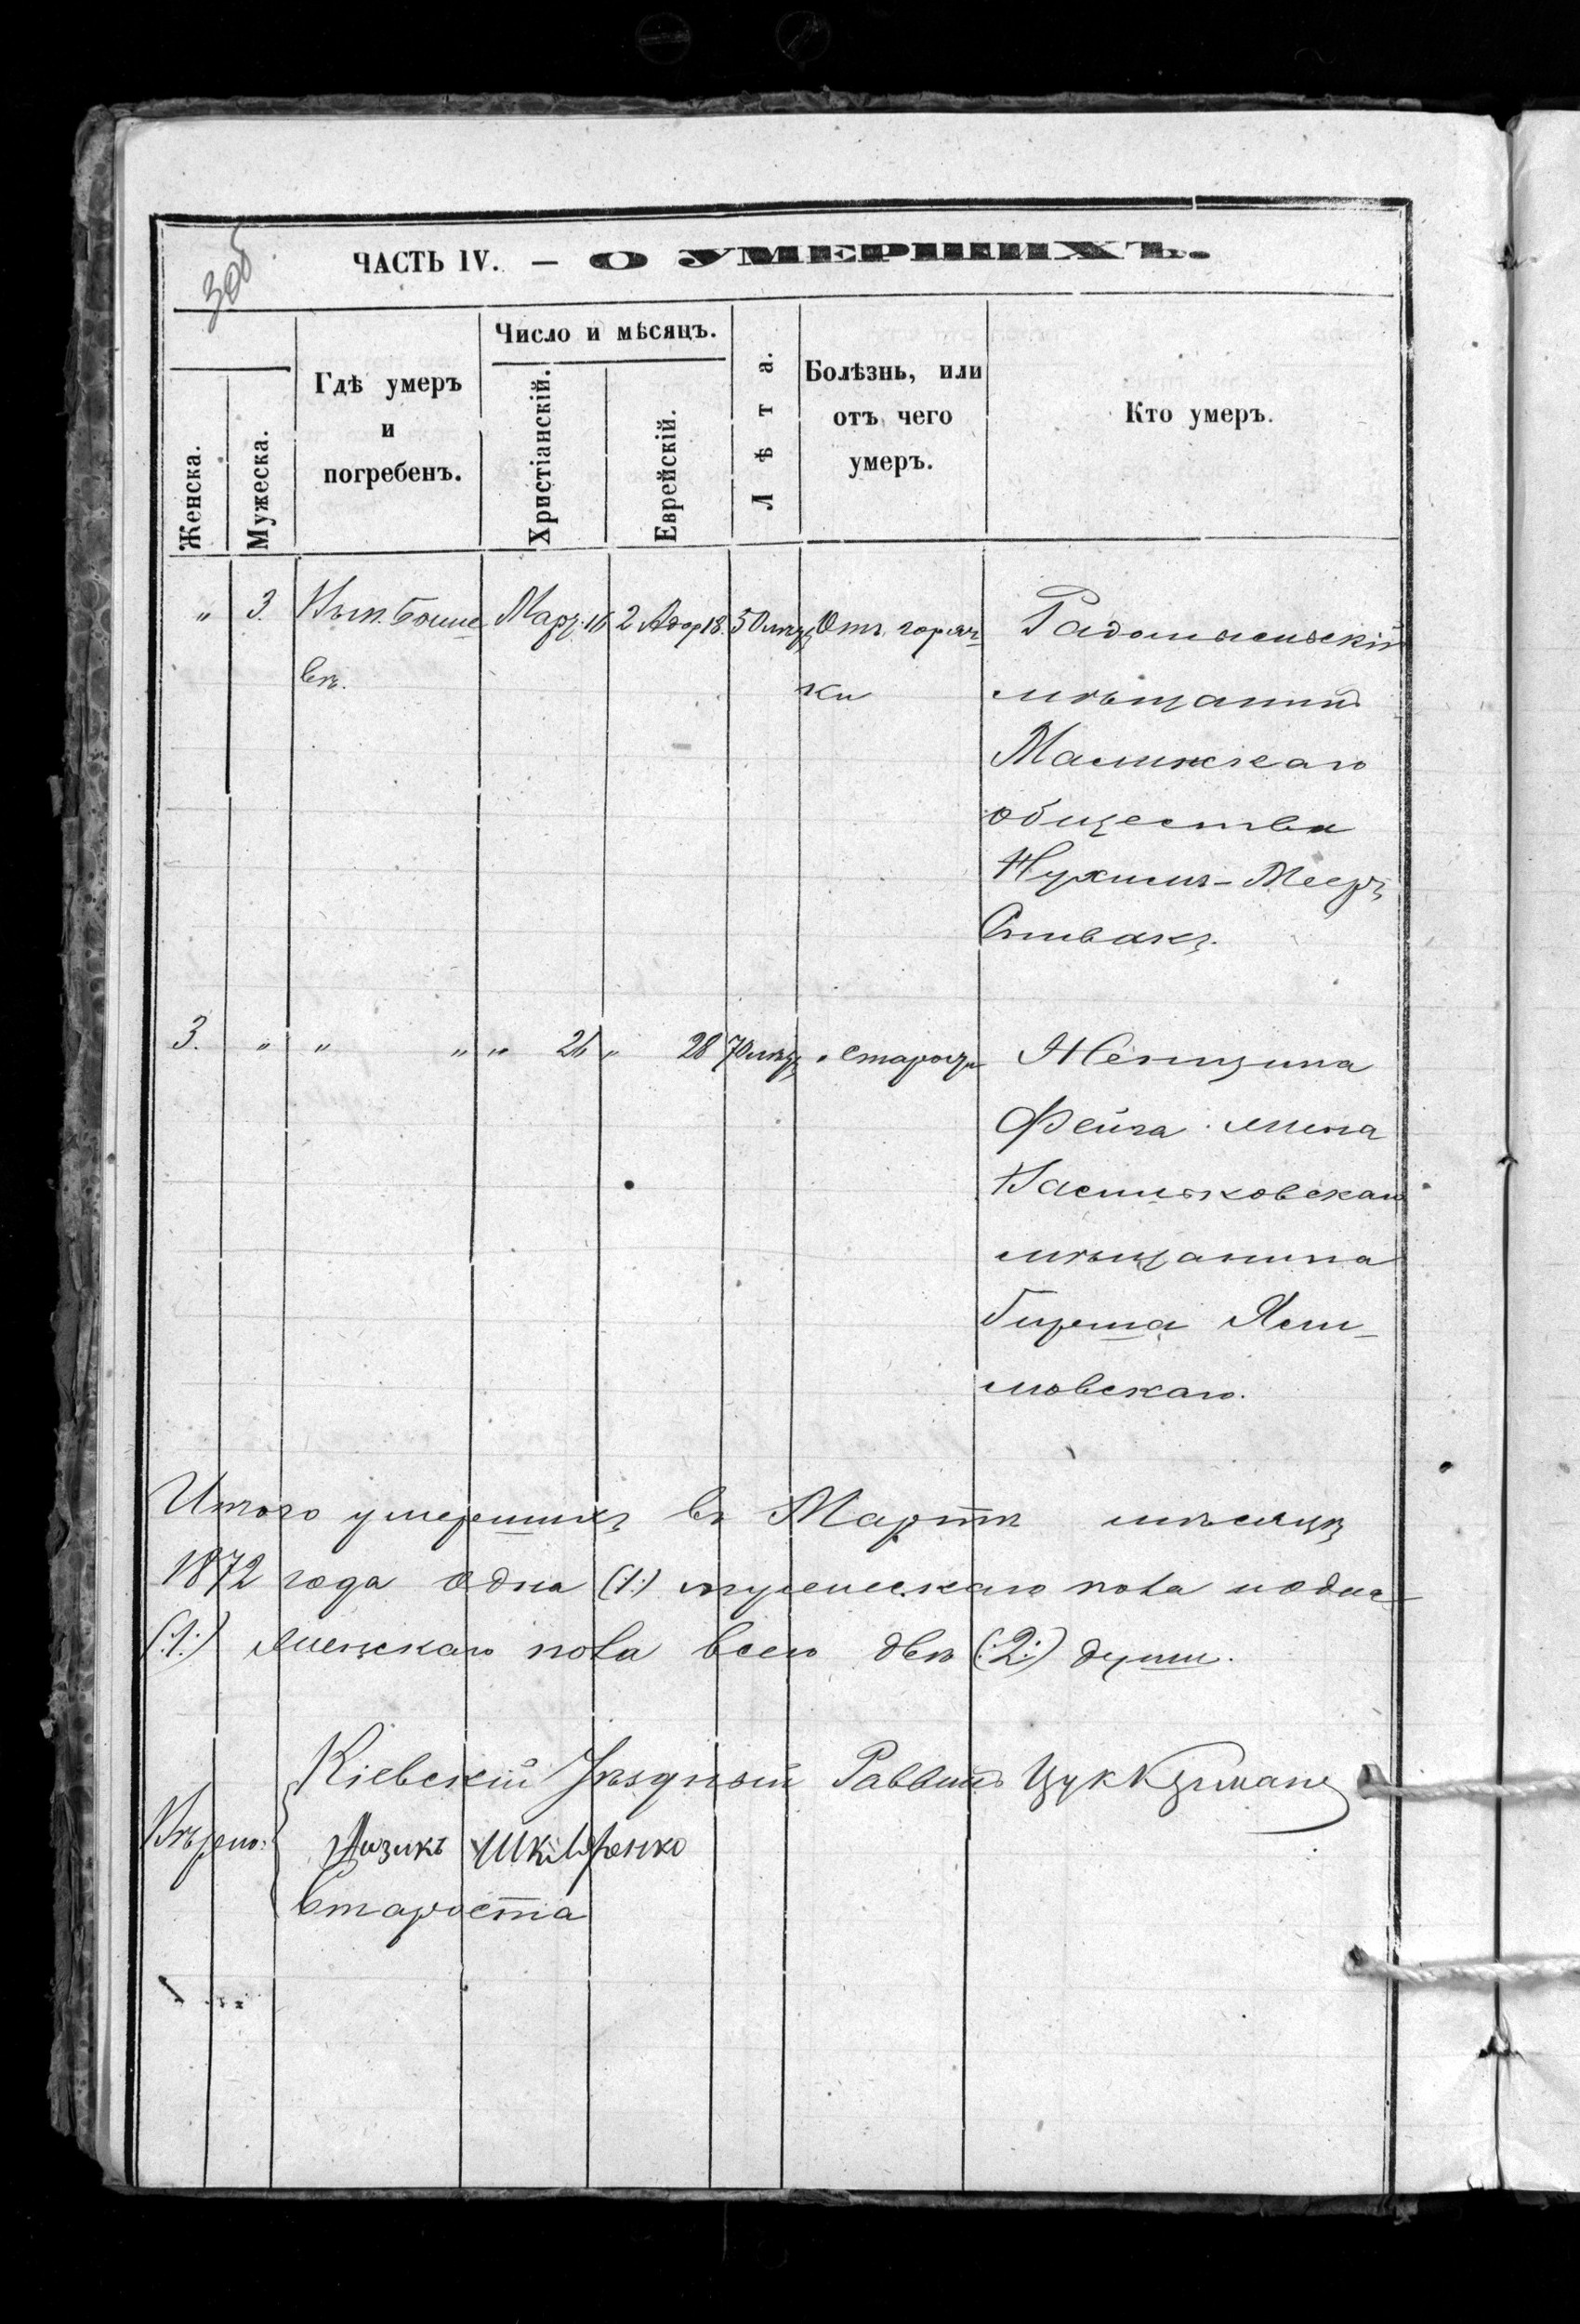 305
ЧАСТЬ IV. — О УМЕРШИХЪ.
Женска.
Мужеска.
Гдѣ умеръ
и
погребенъ.
Число и мѣсяцъ.
Христіанскій.
Еврейскій.
Лѣта.
Болѣзнь, или
отъ чего
умеръ.
Кто умеръ.
„ 3. Въ м. Бышe Мар. 16 2 Адор 18. 50 лѣтъ Отъ горяч- Радомысльскій
вѣ. ки мѣщанинъ
Малинскаго
общества
Нухимъ-Мееръ
Спивакъ.
3. „ „ „ „ 26 „ 28 70 лѣтъ „ старости Женщина
Фейга жена
Васильковскаго
мѣщанина
Гирша Ясм-
ловскаго.
Итого умершихъ въ Мартѣ мѣсяцѣ
1872 года одна (:1:) мужескаго пола и одна
(:1:) женскаго пола всего двѣ (:2:) души.
Кіевскій Уѣздный Раввинъ Цуккерманъ
Вѣрно:
Айзикъ
Староста